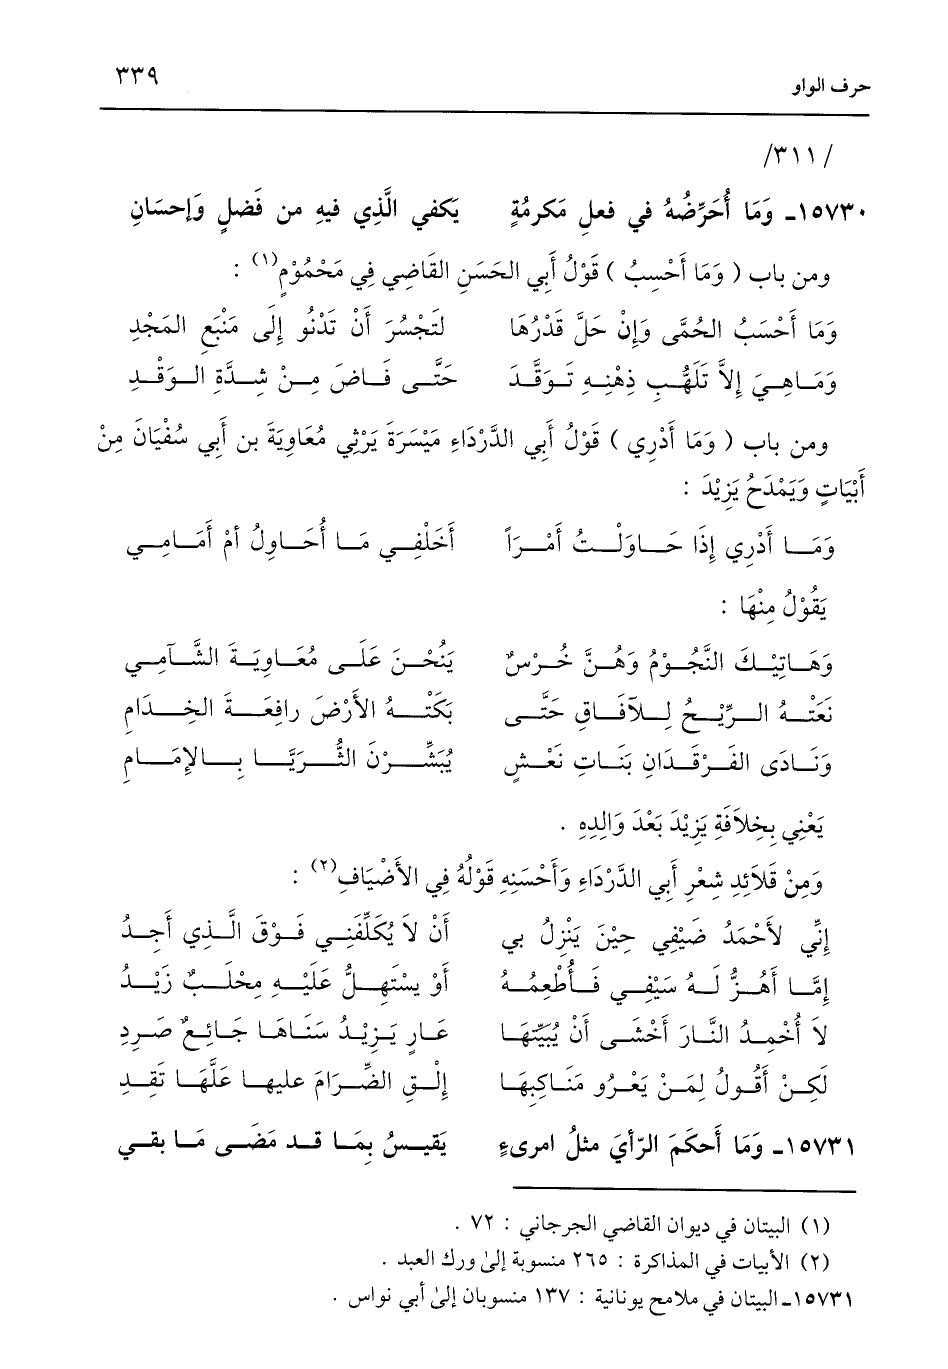 حرف الواو ٣٣٩
/٣١١/
١٥٧٣٠ـ وَمَا أُحَرِّضُهُ في فعلِ مَكرمُةٍ يَكفي الَّذي فيهِ من فَضلٍ وَإحسَانِ
ومن باب ( وَمَا أَحْسِبُ ) قَوْلُ أَبي الحَسَنِ القَاضِي فِي مَحْمُوْمٍ(١) :
وَمَا أَحْسَبُ الحُمَّى وَإِنْ حَلَّ قَدْرُهَا لَتَجْسُرَ أَنْ تَدْنُو إِلَى مَنْبَعِ المَجْدِ
وَمَاهِيَ إِلاَّ تَلَهُّب ذِهْنِهِ تَوَقَّدَ حَتَّى فَاضَ مِنْ شِدَّةِ الوَقْدِ
ومن باب ( وَمَا أَدْرِي ) قَوْلُ أَبي الدَّرْدَاءِ مَيْسَرَةَ يَرْثِي مُعَاوِيَةَ بن أَبي سُفْيَانَ مِنْ
أَبْيَاتٍ وَيَمْدَحُ يَزِيْدَ :
وَمَا أَدْرِي إِذَا حَاوَلْتُ أَمْرَاً أَخَلْفِي مَا أُحَاوِلُ أمْ أَمَامِي
يَقُوْلُ مِنْهَا :
وَهَاتِيْكَ النُّجُوْمُ وَهُنَّ خُرْسٌ يَنُحْنَ عَلَى مُعَاوِيَةَ الشَّآمِي
نَعَتْهُ الرِّيْحُ لِلآفَاقِ حَتَّى بَكَتْهُ الأَرْضَ رافِعَةَ الخِدَامِ
وَنَادَى الفَرْقَدَانِ بَنَاتِ نَعْشٍ يُبَشِّرْنَ الثُّرَيَّا بِالإِمَامِ
يَعْنِي بِخِلاَفَةِ يَزِيْدَ بَعْدَ وَالِدِهِ .
وَمِنْ قَلاَئِدِ شِعْرِ أَبي الدَّرْدَاءِ وَأَحْسَنِهِ قَوْلُهُ فِي الأَضْيَافِ(٢) :
إِنِّي لأَحْمَدُ ضَيْفِي حِيْنَ يَنْزِلُ بي أَنْ لاَ يُكَلِّفَنِي فَوْقَ الَّذِي أَجِدُ
إِمَّا أَهُزُّ لَهُ سَيْفِي فَأُطْعِمُهُ أَوْ يسْتَهِلُّ عَلَيْهِ مِحْلَبٌ زَيْدُ
لاَ أُخْمِدُ النَّارَ أَخْشَى أَنْ يُبَيِّتَهَا عَارٍ يَزِيْدُ سَنَاهَا جَائِعٌ صَرِدِ
لَكِنْ أَقُولُ لِمَنْ يَعْرُو مَنَاكِبَهَا إِلْقِ الضِّرَامَ عليها عَلَّهَا تَقِد
١٥٧٣١ـ وَمَا أَحكَمَ الرّأيَ مثلُ امرىءٍ يَقيسُ بِمَا قد مَضَى مَا بقي
(١) البيتان في ديوان القاضي الجرجاني : ٧٢ .
(٢) الأبيات في المذاكرة : ٢٦٥ منسوبة إلىٰ ورك العبد .
١٥٧٣١ـ البيتان في ملامح يونانية : ١٣٧ منسوبان إلىٰ أبي نواس .